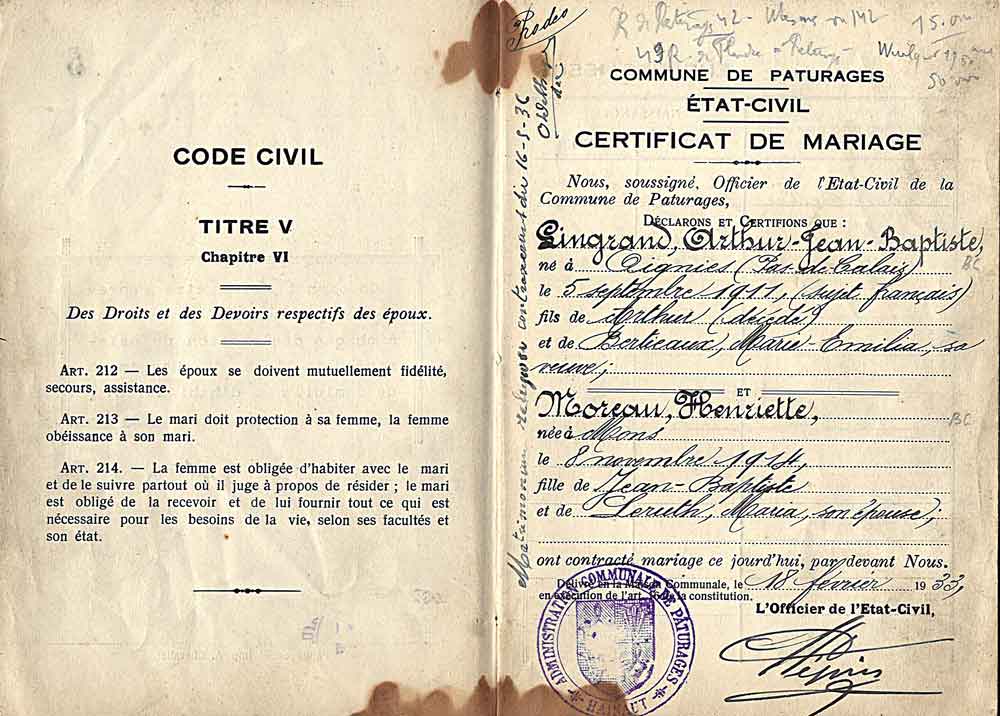 CODE CIVIL
TITRE V
Chapitre VI
Des Droits et des Devoirs respectifs des époux.
ART. 212 — Les époux se doivent mutuellement fidélité,
secours, assistance.
ART. 213 — Le mari doit protection à sa femme, la femme
obéissance à son mari.
ART. 214. — La femme est obligée d'habiter avec le mari
et de le suivre partout où il juge à propos de résider ; le mari
est obligé de la recevoir et de lui fournir tout ce qui est
nécessaire pour les besoins de la vie, selon ses facultés et
son état.
Matrimonium religiose contraxerunt die 16-5-36
COMMUNE DE PATURAGES
ÉTAT-CIVIL
CERTIFICAT DE MARIAGE
Nous, soussigné, Officier de l'Etat-Civil de la
Commune de Paturages,
DÉCLARONS ET CERTIFIONS QUE :
Lingrand, Arthur-Jean-Baptiste,
né à Oignies (Pas de Calais)
BC
le 5 septembre 1911, (sujet français)
fils de Arthur (décédé)
et de Bertieaux, Marie-Emilia, sa
veuve;
ET
Moreau, Henriette,
BC
née à Mons
le 8 novembre 1914,
fille de Jean-Baptiste
et de Leruth, Maria, son épouse;
ont contracté mariage ce jourd'hui, par devant Nous.
Délivré en la Maison Communale, le 18 février 1933,
en exécution de l'art. 16 de la constitution.
L'Officier de l'Etat-Civil,
ADMINISTRATION COMMUNALE DE PÂTURAGES
HAINAUT